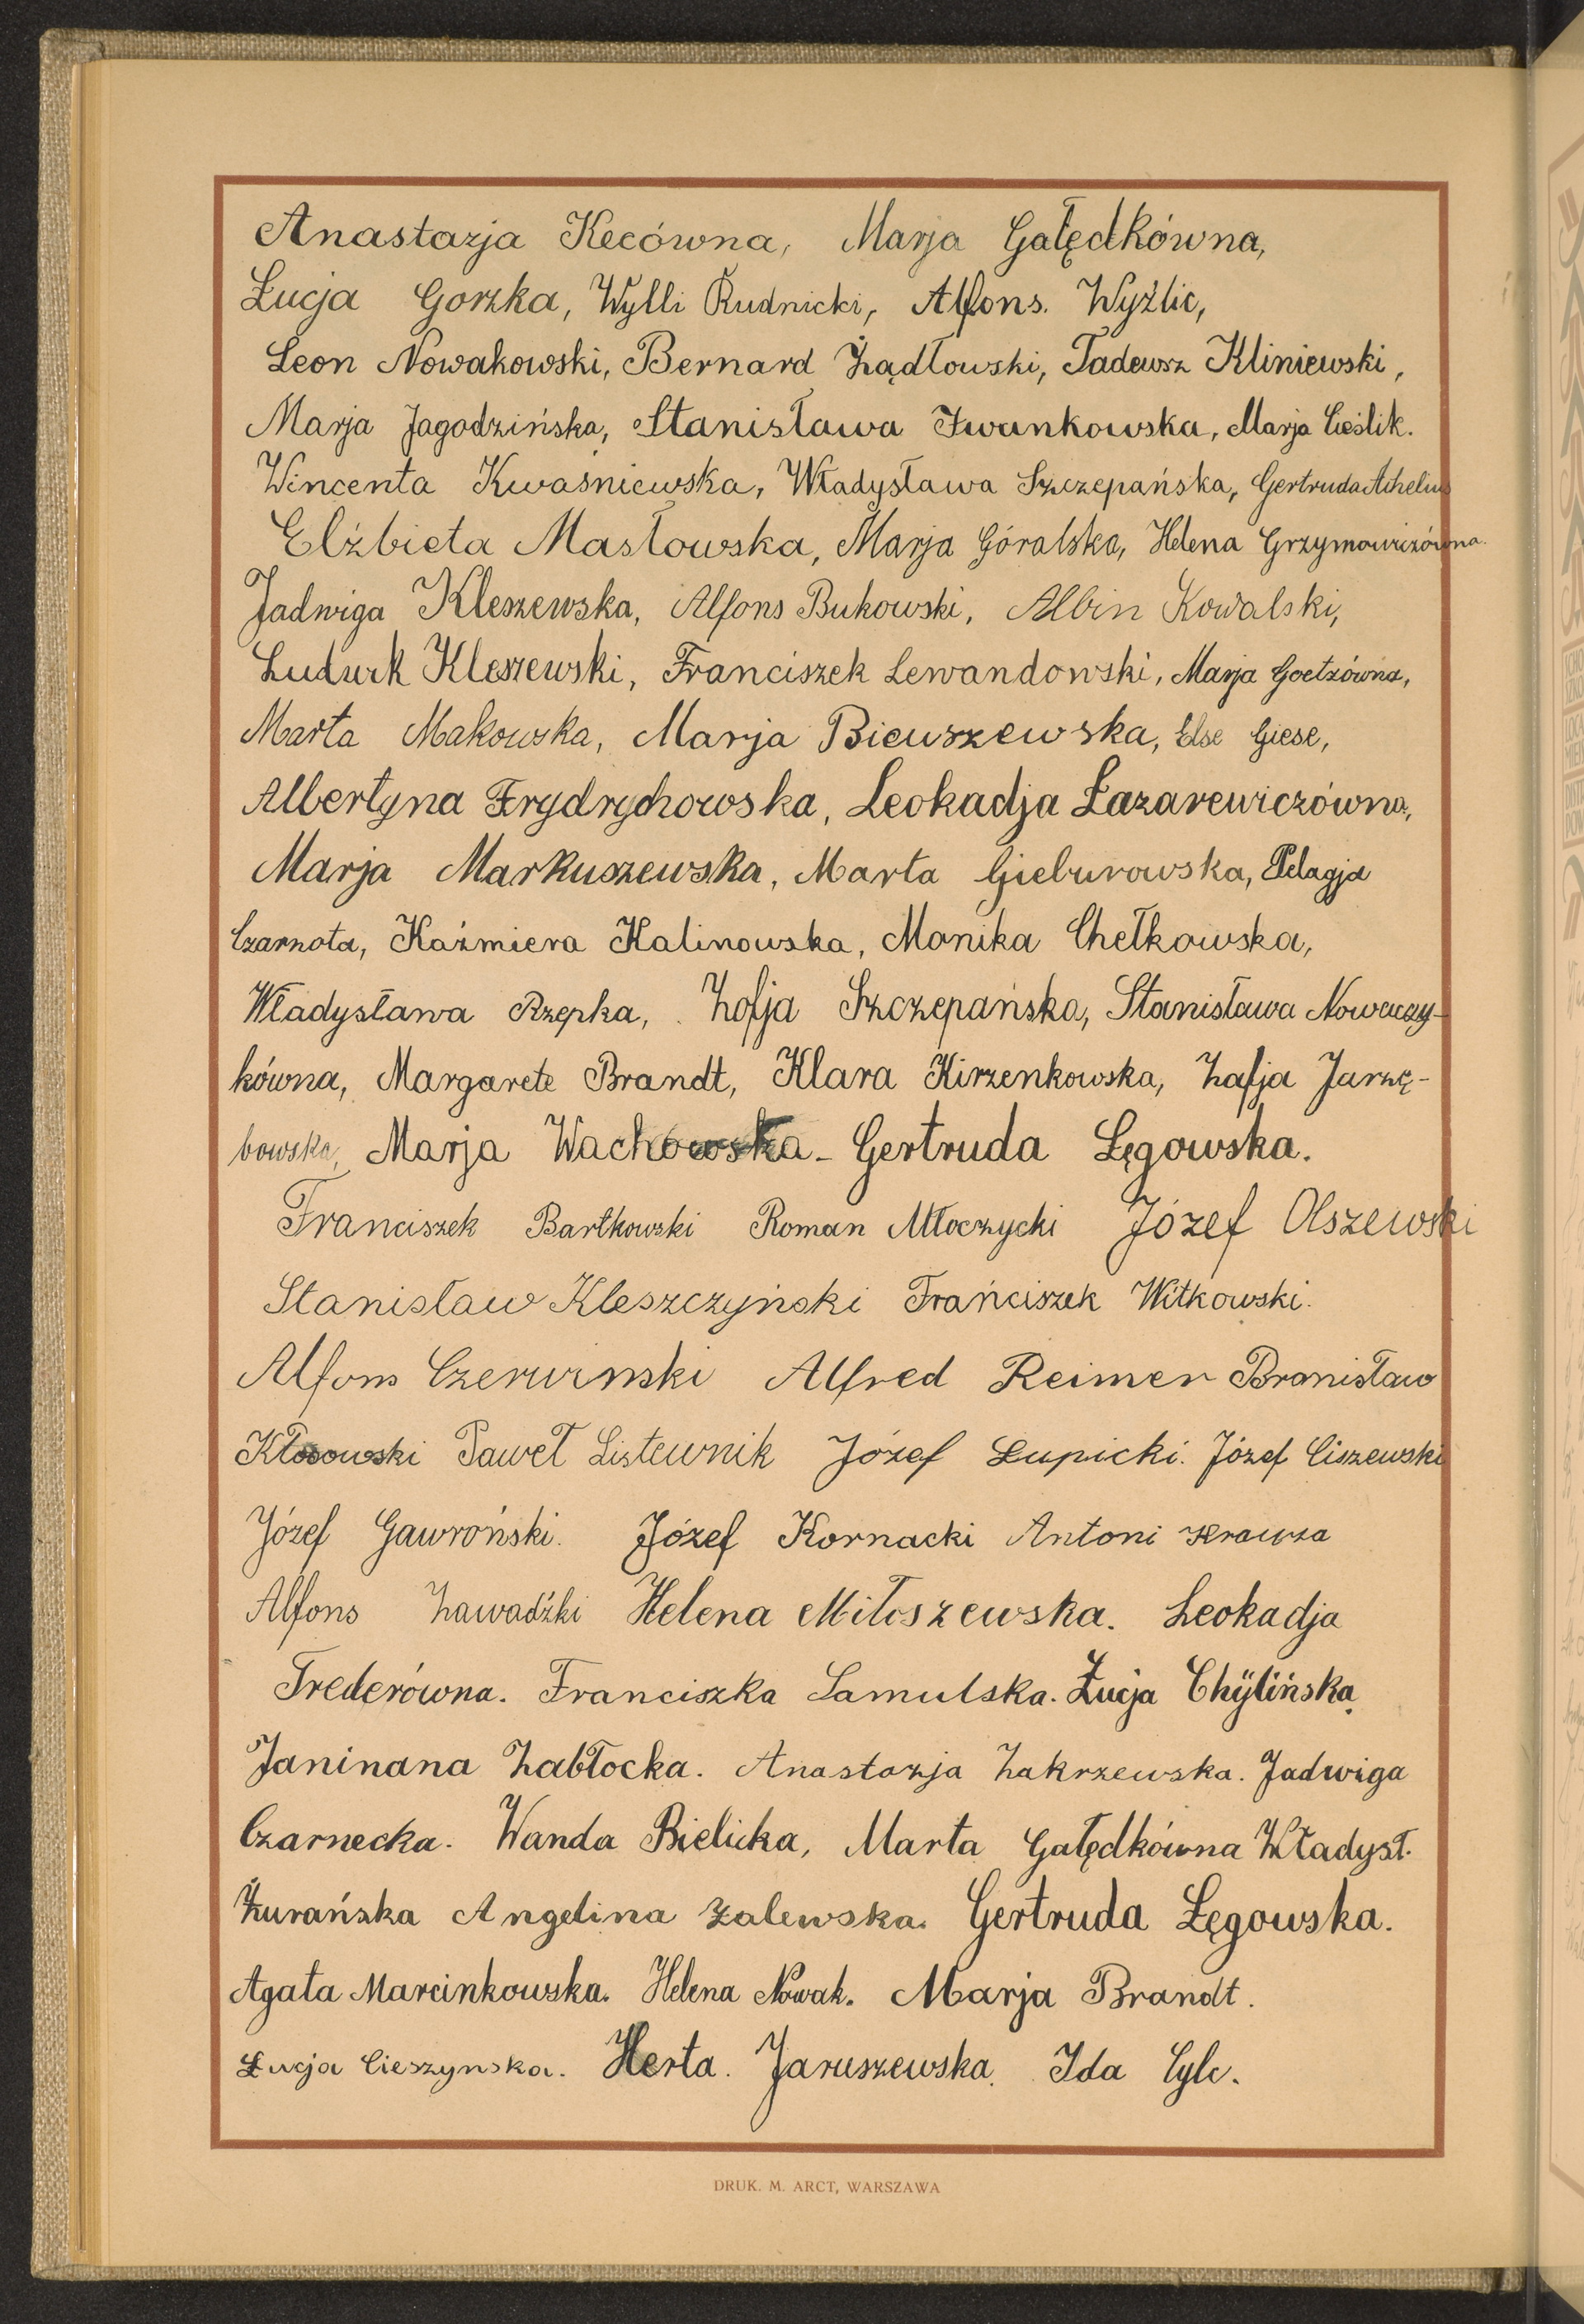 Anastazja Kecówna, Marja Gałędkówna,
Łucja Gorzka, Wylli Rudnicki, Alfons. Wyżlic,
Leon Nowakowski, Bernard Żądłowski, Tadeusz Kliniewski,
Marja Jagodzińska, Stanisława Iwankowska, Marja Cieślik.
Wincenta Kwaśniewska, Władysława Szczepańska, Gertruda Athelius
Elżbieta Masłowska, Marja Góralska, Helena Grzymowiczówna.
Jadwiga Kleszewska, Alfons Bukowski, Albin Kowalski,
Ludwik Kleszewski, Franciszek Lewandowski, Marja Goetzówna,
Marta Makowska, Marja Bieuszewska, Else Giese,
Albertyna Frydrychowska, Leokadja Łazarewiczówna,
Marja Markuszewska, Marta Gieburowska, Pelagja
Czarnota, Kaźmiera Kalinowska, Monika Chełkowska,
Władysława Rzepka, Zofja Szczepańska, Stanisława Nowaczy-
kówna, Margarete Brandt, Klara Kirzenkowska, Zofja Jarzę-
bowska, Marja Wachowska - Gertruda Łęgowska.
Franciszek Bartkowski Roman Młoczycki Józef Olszewski
Stanisław Kleszczyński Franciszek Witkowski.
Alfons Czerwinski Alfred Reimer Bronisław
Kłosowski Paweł Listewnik Józef Łupicki. Józef Ciszewski
Józef Gawroński. Józef Kornacki Antoni
Alfons Zawadzki Helena Miłoszewska. Leokadja
Trederówna. Franciszka Samulska. Łucja Chylińska,
Janinana Zabłocka. Anastazja Zakrzewska. Jadwiga
Czarnecka. Wanda Bielicka, Marta Gałędkówna Władysł.
Żurańska Angelina Zalewska. Gertruda Łęgowska.
Agata Marcinkowska. Helena Nowak. Marja Brandt.
Łucja Cieszynska. Herta. Jaruszewska. Ida Cylc.
DRUK. M. ARCT, WARSZAWA